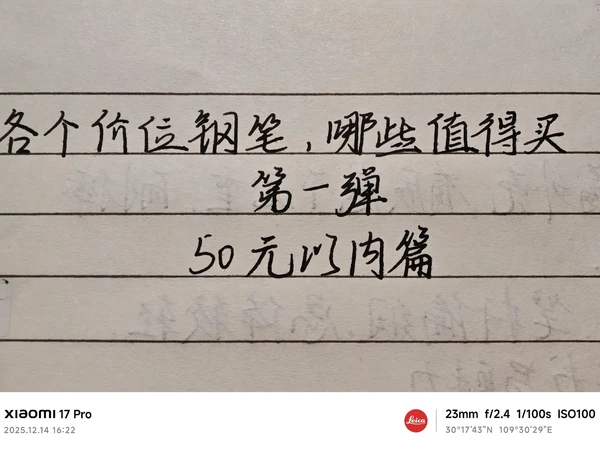 各个价位钢笔，哪些值得买
第一弹
50元以内篇
XIAOMI 17 Pro
2025.12.14 16:22
Leica
23mm f/2.4 1/100s ISO100
30°17'43"N 109°30'29"E